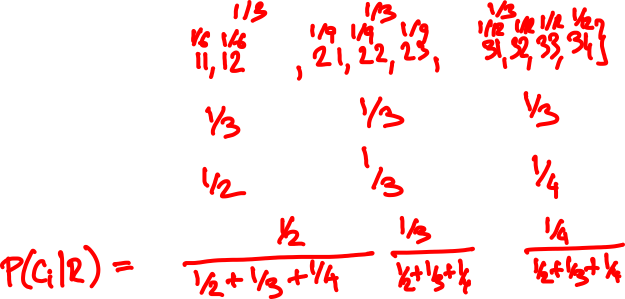 1/3 1/3 1/3
1/6 1/6 1/9 1/9 1/9 1/12 1/12 1/12 1/12
11, 12 , 21, 22, 23, 31, 32, 33, 34}
1/3 1/3 1/3
1/2 1/3 1/4
1/2 1/3 1/4
P(Ci|R) = 1/2 + 1/3 + 1/4 1/2 + 1/3 + 1/4 1/2 + 1/3 + 1/4